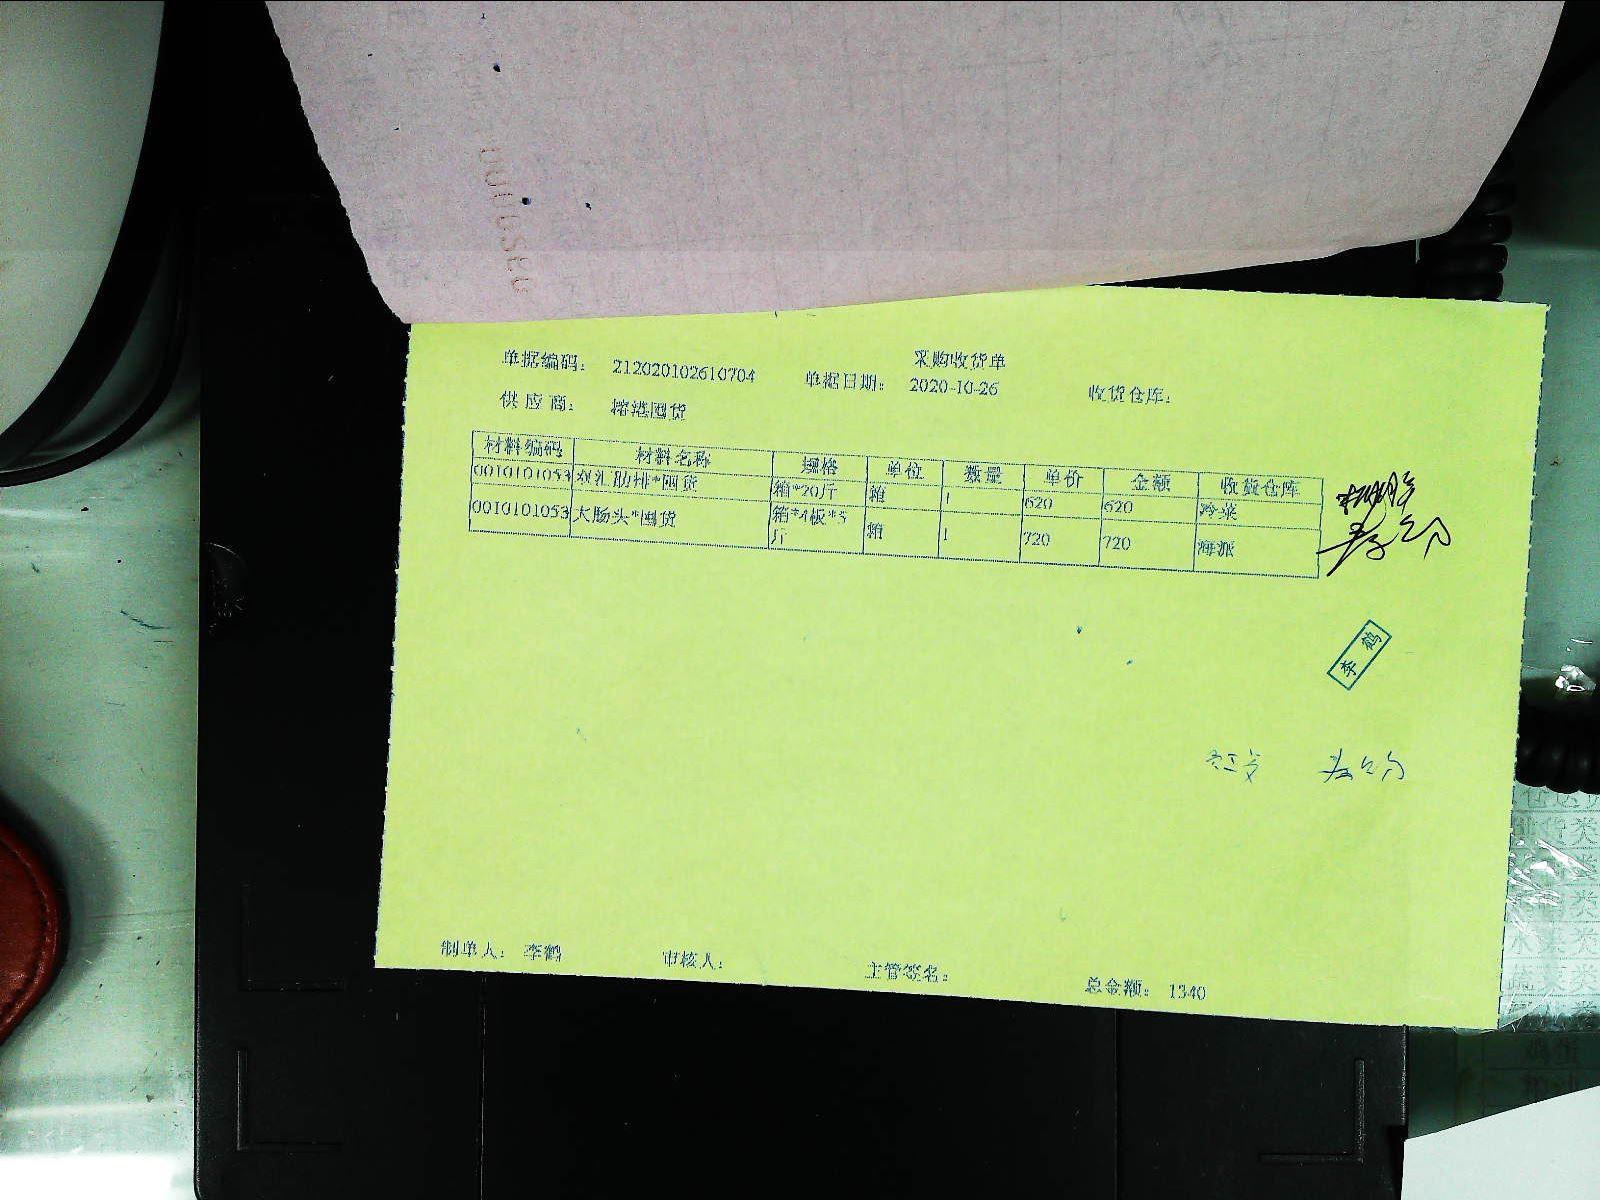 采购收货单
单据编码： 212020102610704 单据日期： 2020-10-26 收货仓库：
供 应 商： 囤货
材料编码 材料名称 规格 单位 数量 单价 金额 收货仓库
0010101053 双汇肋排*囤货 箱*20斤 箱 1 620 620 冷菜
0010101053 大肠头*囤货 箱*4板*5斤 箱 1 720 720 海派
李鹤
制单人： 李鹤 审核人： 主管签名： 总金额： 1340